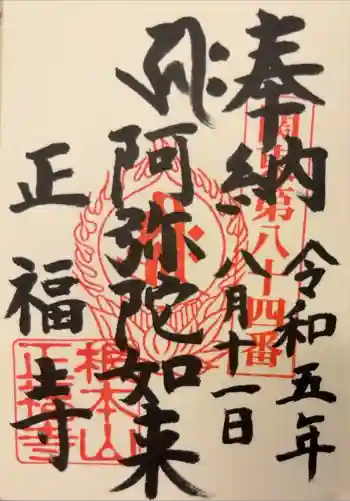 奉納
令和五年
八月十一日
関東第八十四番
𑖮𑖿𑖨𑖱𑖾
阿弥陀如来
正福寺
根本山
正福寺